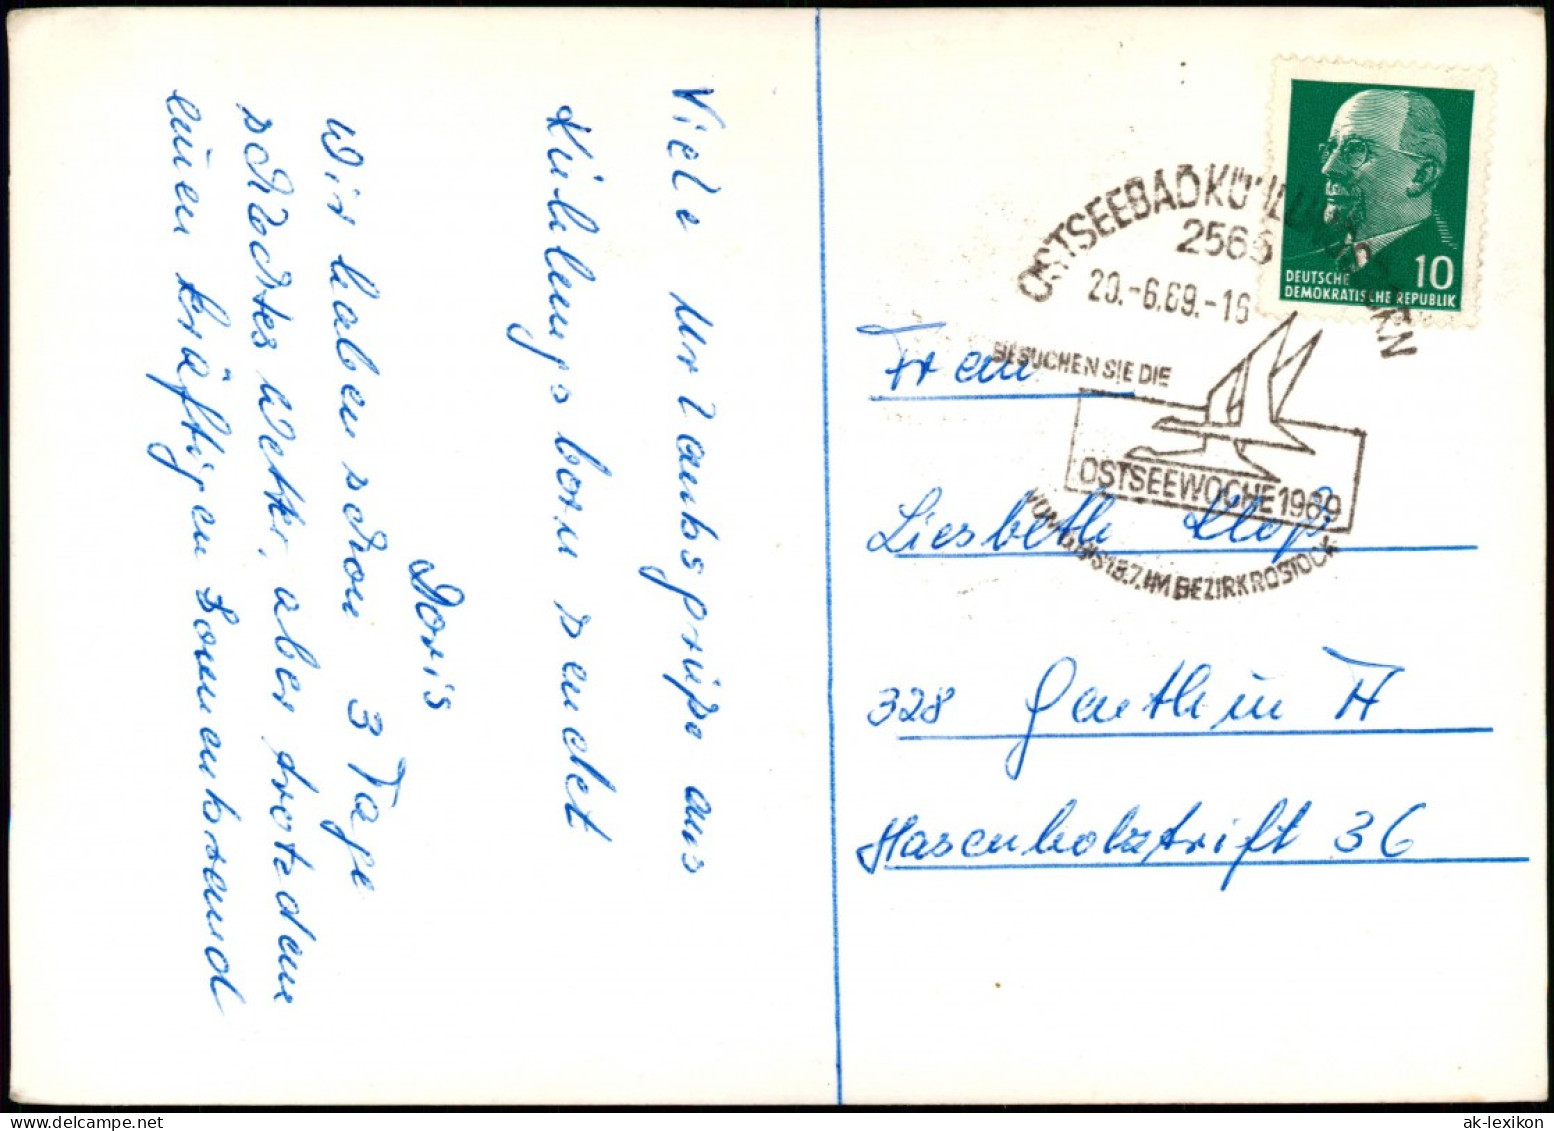 Viele Urlaubsgrüße aus
Kühlungsborn sendet
Doris
Wir haben schon 3 Tage
schlechtes Wetter, aber trotzdem
einen kräftigen Sonnenbrand
OSTSEEBAD KÜHLUNGSBORN
2565
20.-6.69.-16
BESUCHEN SIE DIE
OSTSEEWOCHE 1969
BIS 13.7. IM BEZIRK ROSTOCK
10
DEUTSCHE
DEMOKRATISCHE REPUBLIK
Frau
Liesbeth
328 Genthin
Hasenholztrift 36
ak-lexikon